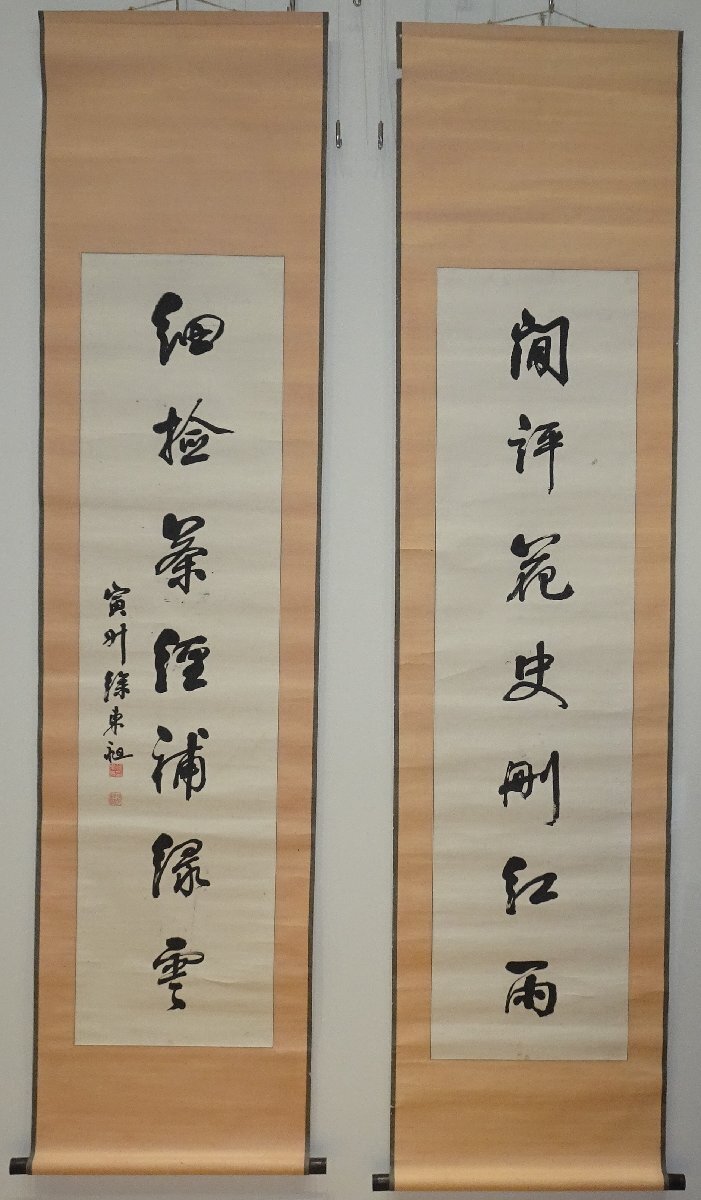 閒評花史刪紅雨
細撿茶經補綠雲
寅州徐東祖